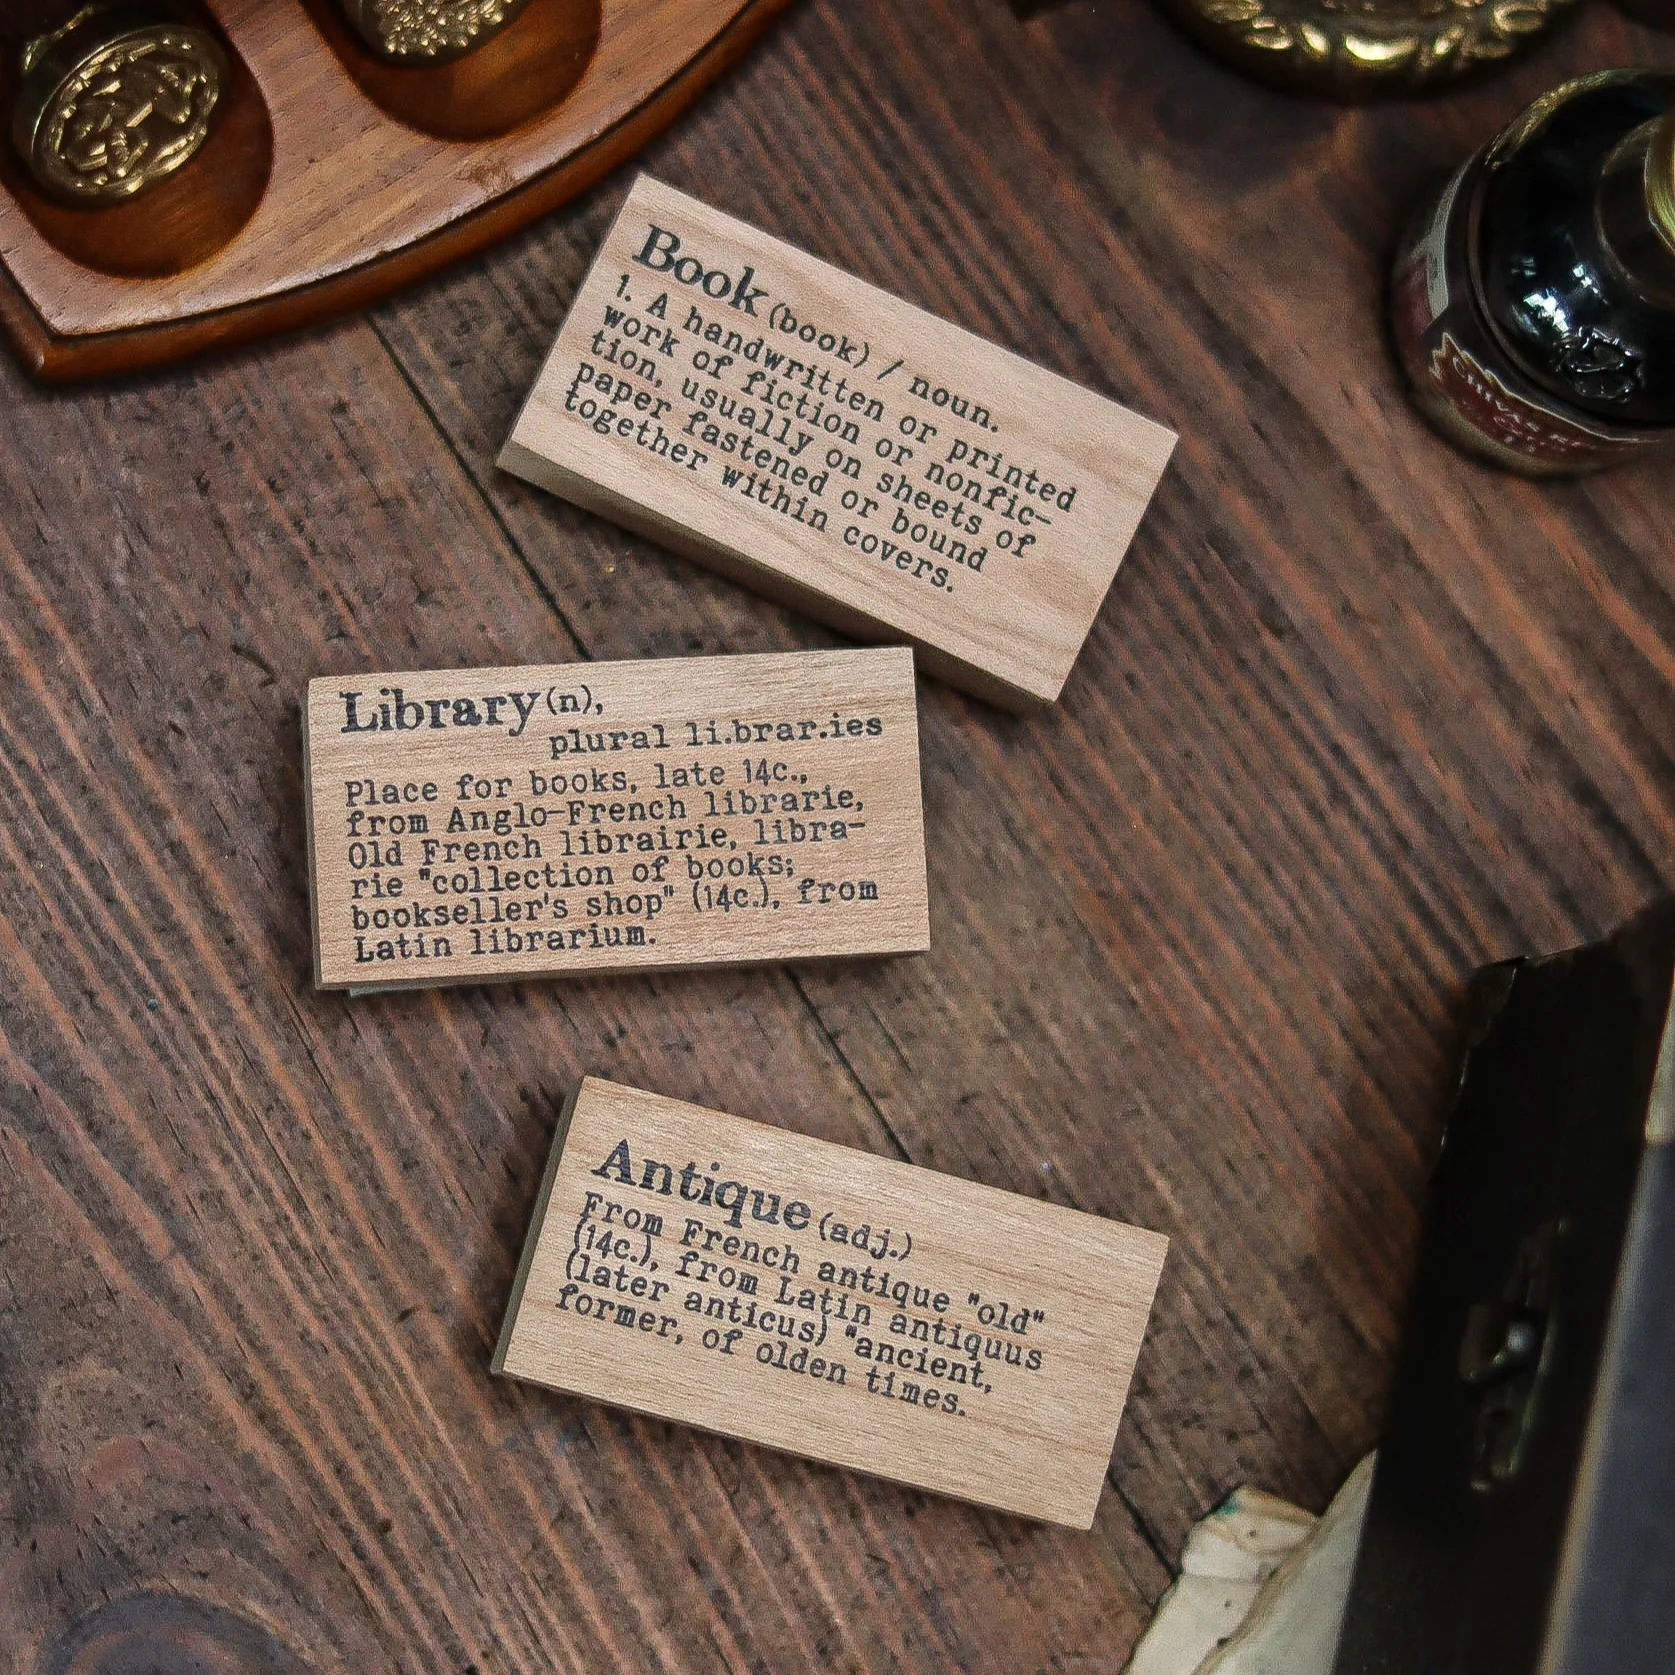 Book (book) / noun.
1. A handwritten or printed
work of fiction or nonfic-
tion, usually on sheets of
paper fastened or bound
together within covers.
Library (n),
plural li.brar.ies
Place for books, late 14c.,
from Anglo-French librarie,
Old French librairie, libra-
rie "collection of books;
bookseller's shop" (14c.), from
Latin librarium.
Antique (adj.)
From French antique "old"
(14c.), from Latin antiquus
(later anticus) "ancient,
former, of olden times.
CHIVAS